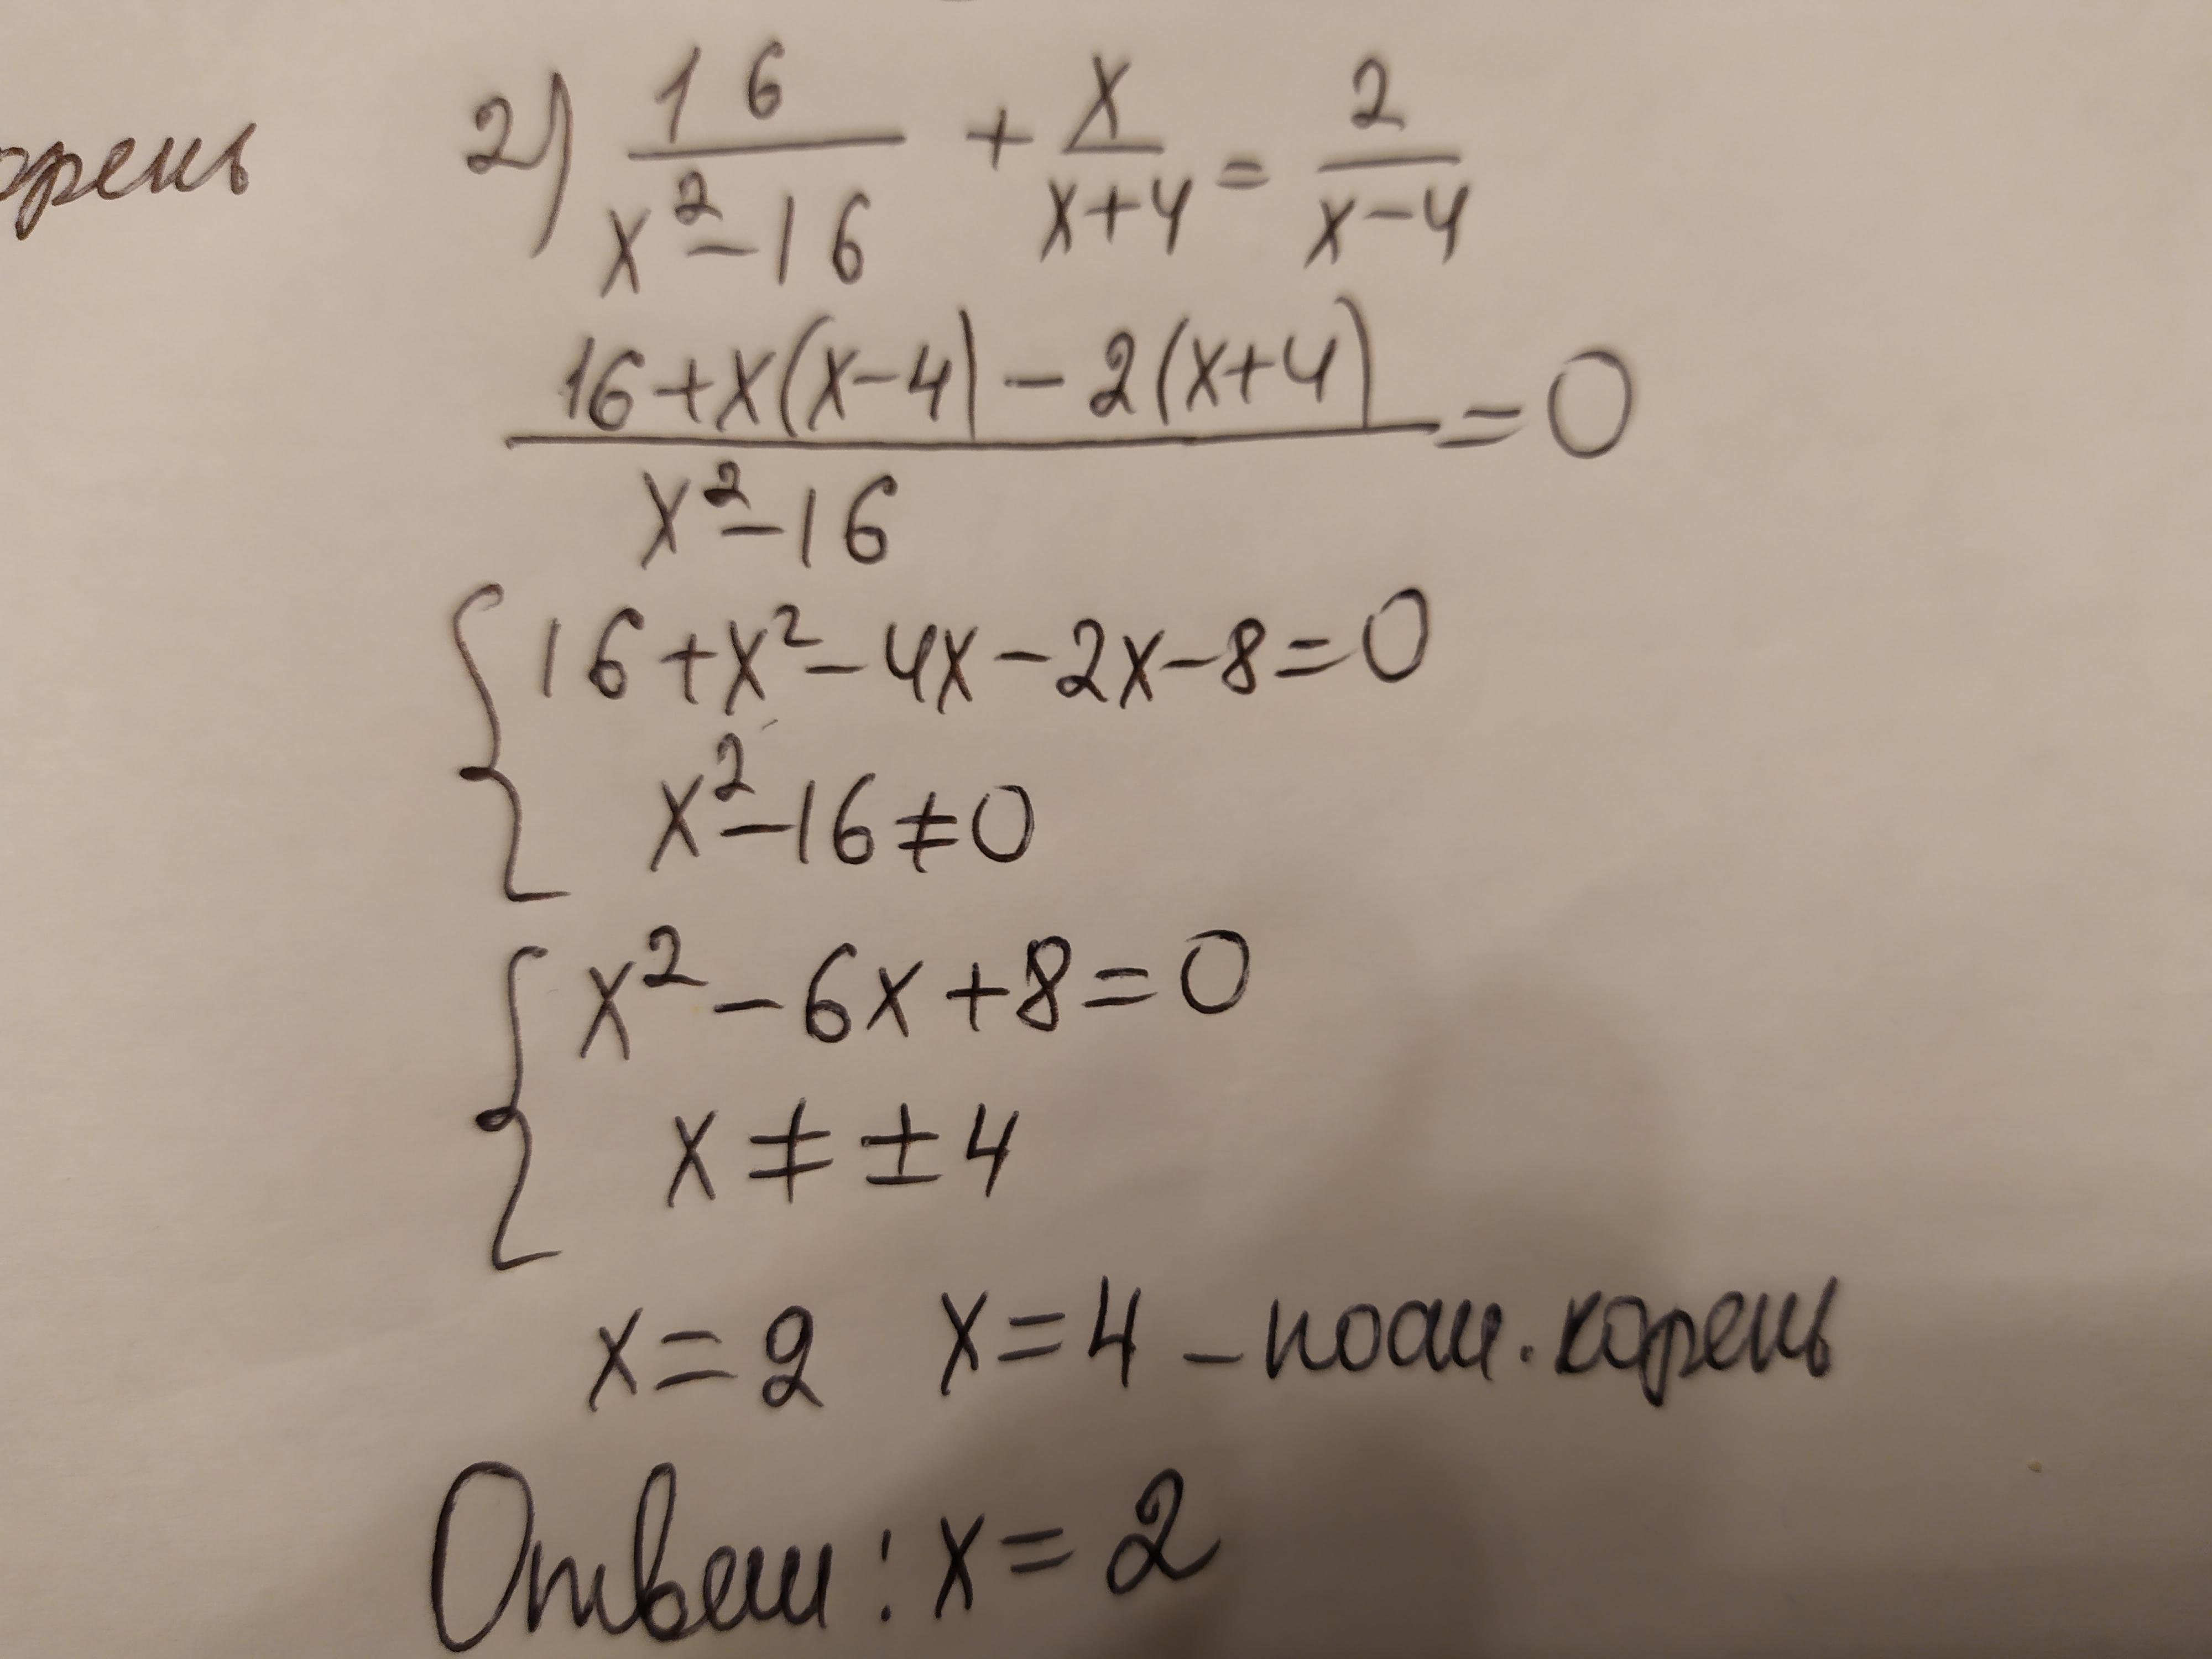 орень
2) 16/(x²-16) + x/(x+4) = 2/(x-4)
(16+x(x-4)-2(x+4))/(x²-16) = 0
{ 16+x²-4x-2x-8=0
x²-16≠0
{ x²-6x+8=0
x≠±4
x=2 x=4 - пост. корень
Ответ: x=2